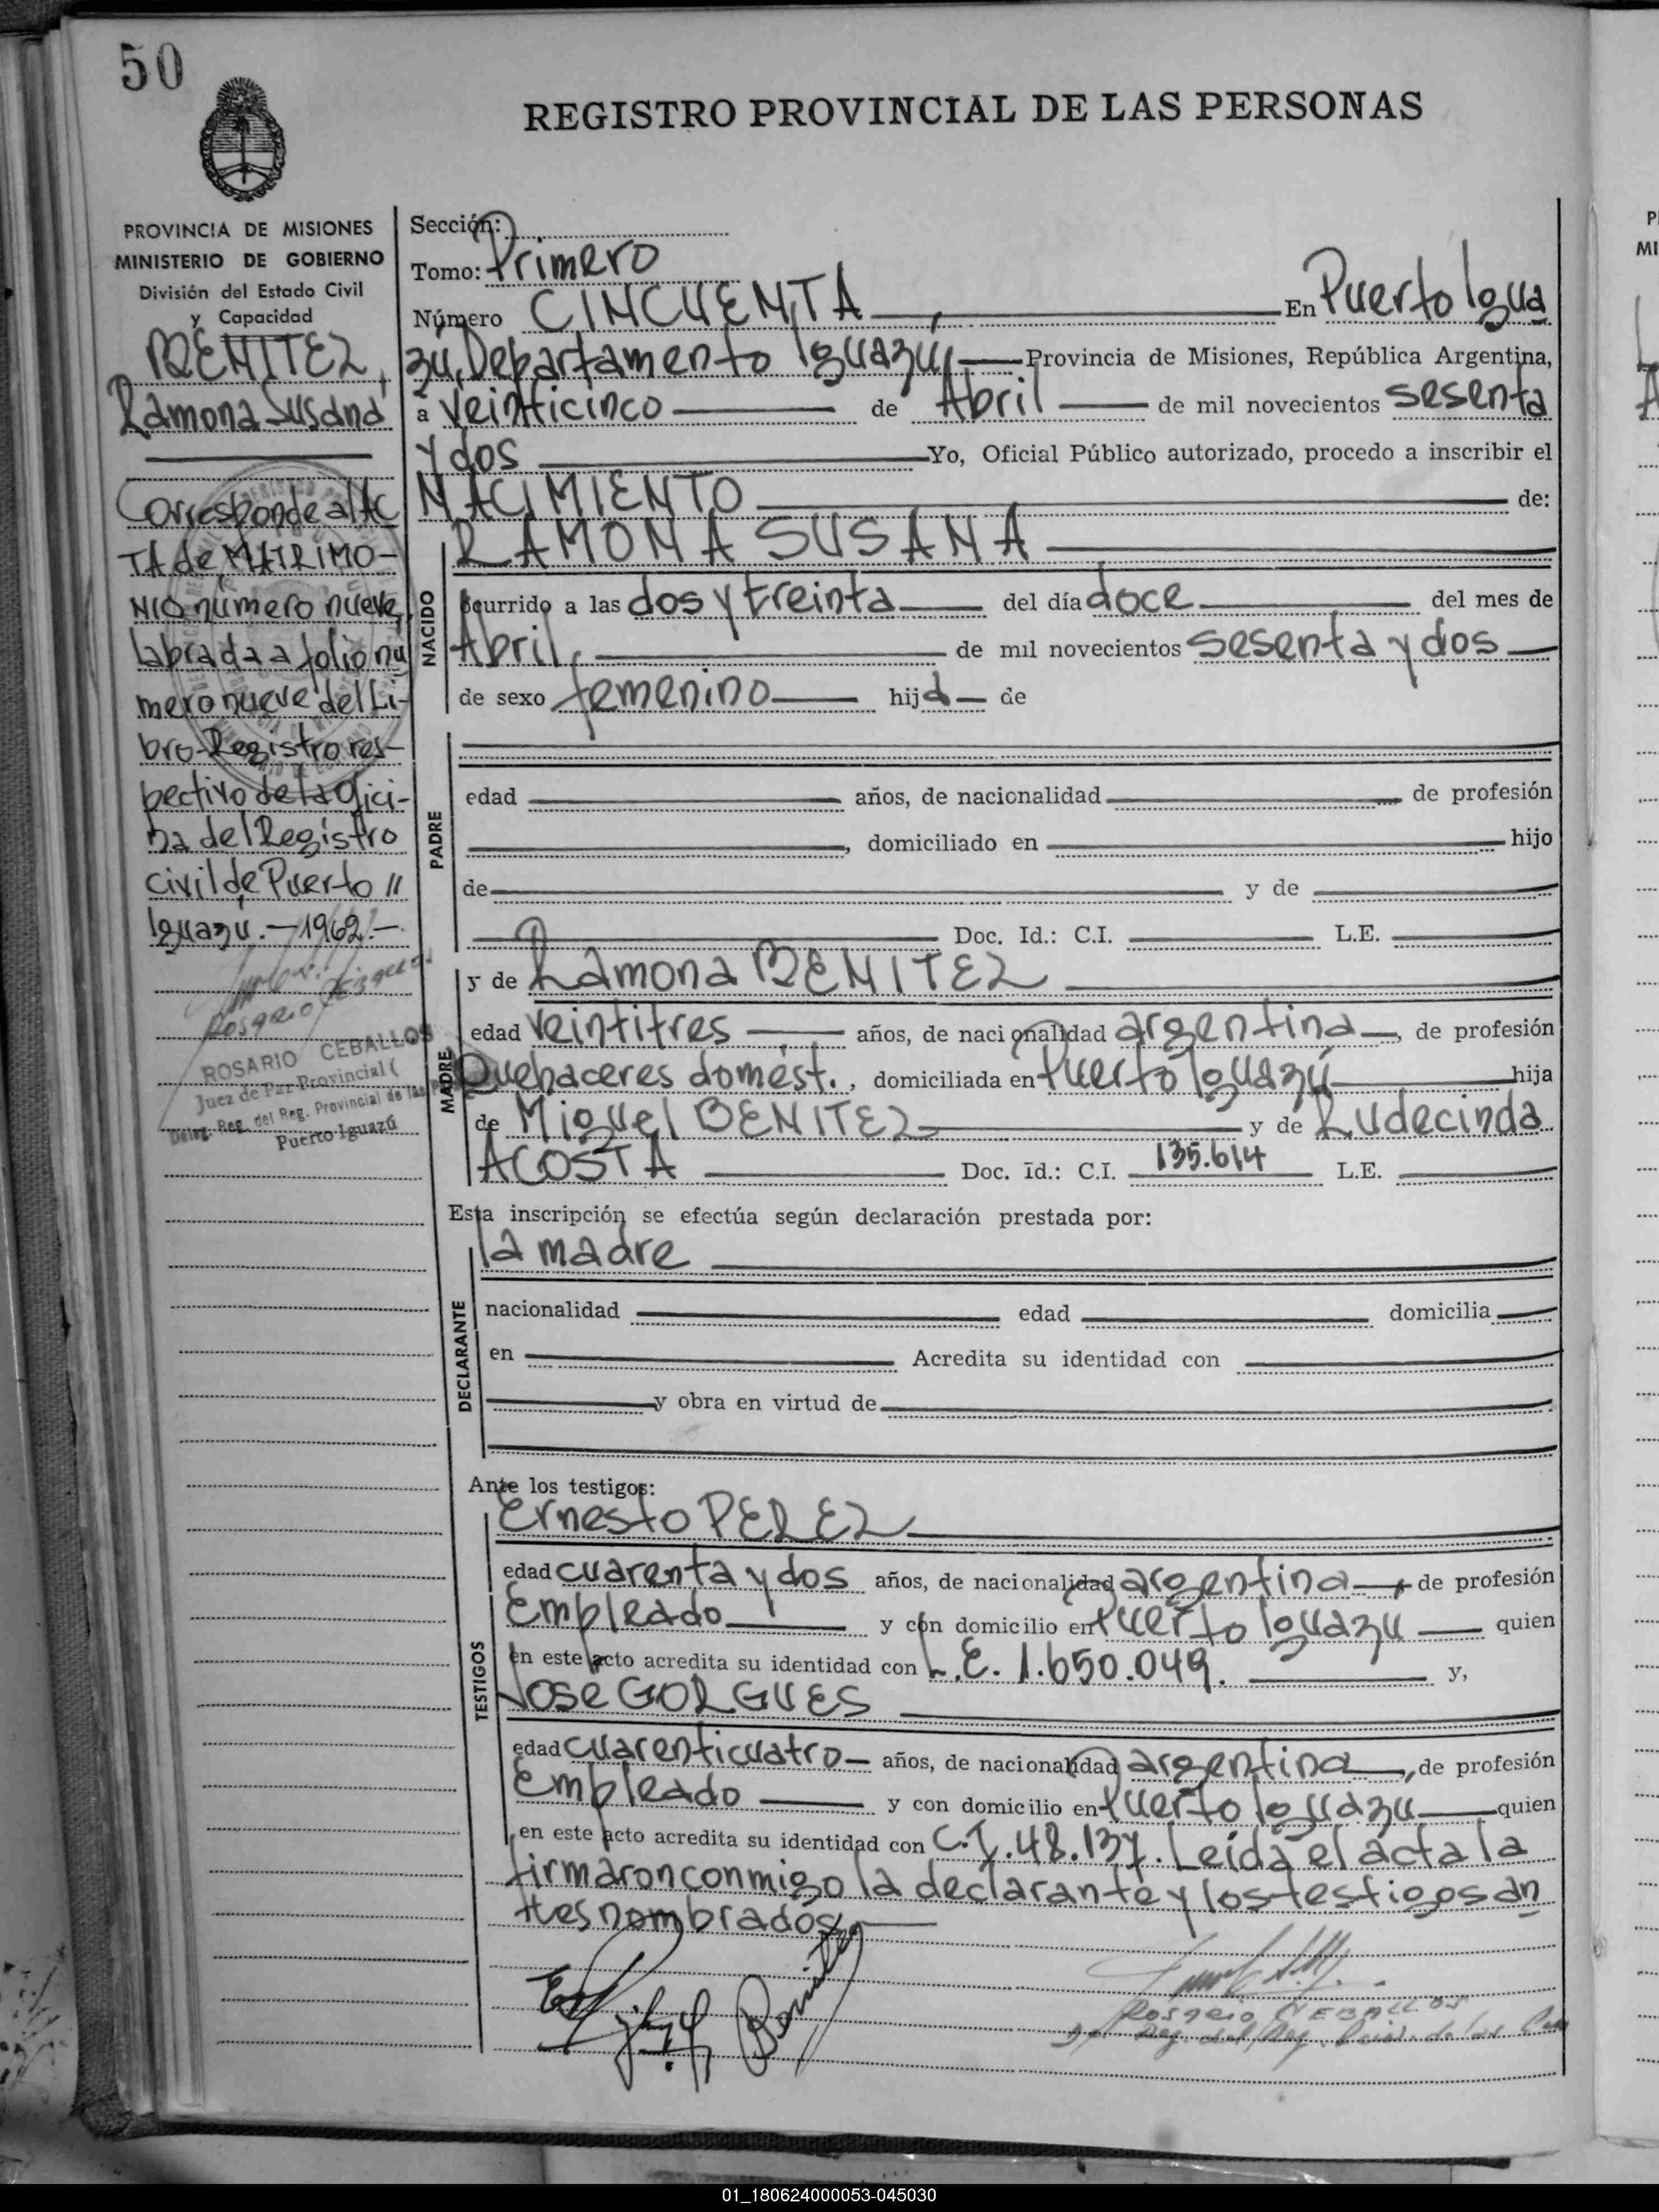 50
REGISTRO PROVINCIAL DE LAS PERSONAS
PROVINCIA DE MISIONES
MINISTERIO DE GOBIERNO
División del Estado Civil
y Capacidad
BENITEZ,
Ramona Susana
Corresponde al AC
TA de MATRIMO-
NIO número nueve,
labrada a folio nú
mero nueve del Li-
bro-Registro res-
pectivo de la Ofici-
na del Registro
civil de Puerto "
Iguazú.-1962.-
ROSARIO CEBALLOS
Juez de Paz Provincial (
Deleg. Reg. del Reg. Provincial de las
Puerto Iguazú
Sección:
Tomo: Primero
Número CINCUENTA, En Puerto Igua
zú, Departamento Iguazú, Provincia de Misiones, República Argentina,
a veinticinco de Abril de mil novecientos sesenta
y dos Yo, Oficial Público autorizado, procedo a inscribir el
NACIMIENTO de:
NACIDO
RAMONA SUSANA
ocurrido a las dos y treinta del día doce del mes de
Abril, de mil novecientos sesenta y dos
de sexo femenino hija de
PADRE
edad años, de nacionalidad de profesión
, domiciliado en hijo
de y de
Doc. Id.: C.I. L.E.
MADRE
y de Ramona BENITEZ
edad veintitres años, de nacionalidad argentina, de profesión
Quehaceres domést., domiciliada en Puerto Iguazú hija
de Miguel BENITEZ y de Ludecinda
ACOSTA Doc. Id.: C.I. 135.614 L.E.
Esta inscripción se efectúa según declaración prestada por:
DECLARANTE
la madre
nacionalidad edad domicilia
en Acredita su identidad con
y obra en virtud de
Ante los testigos:
TESTIGOS
Ernesto PEREZ
edad cuarenta y dos años, de nacionalidad argentina, de profesión
Empleado y con domicilio en Puerto Iguazu quien
en este acto acredita su identidad con L.E. 1.650.049. y,
Jose GORGUES
edad cuarenticuatro años, de nacionalidad argentina, de profesión
Empleado y con domicilio en Puerto Iguazu quien
en este acto acredita su identidad con C.I. 48.137. Leida el acta la
firmaron conmigo la declarante y los testigos an
ttes nombrados.
Benitez
Rosario CEBALLOS
01_180624000053-045030